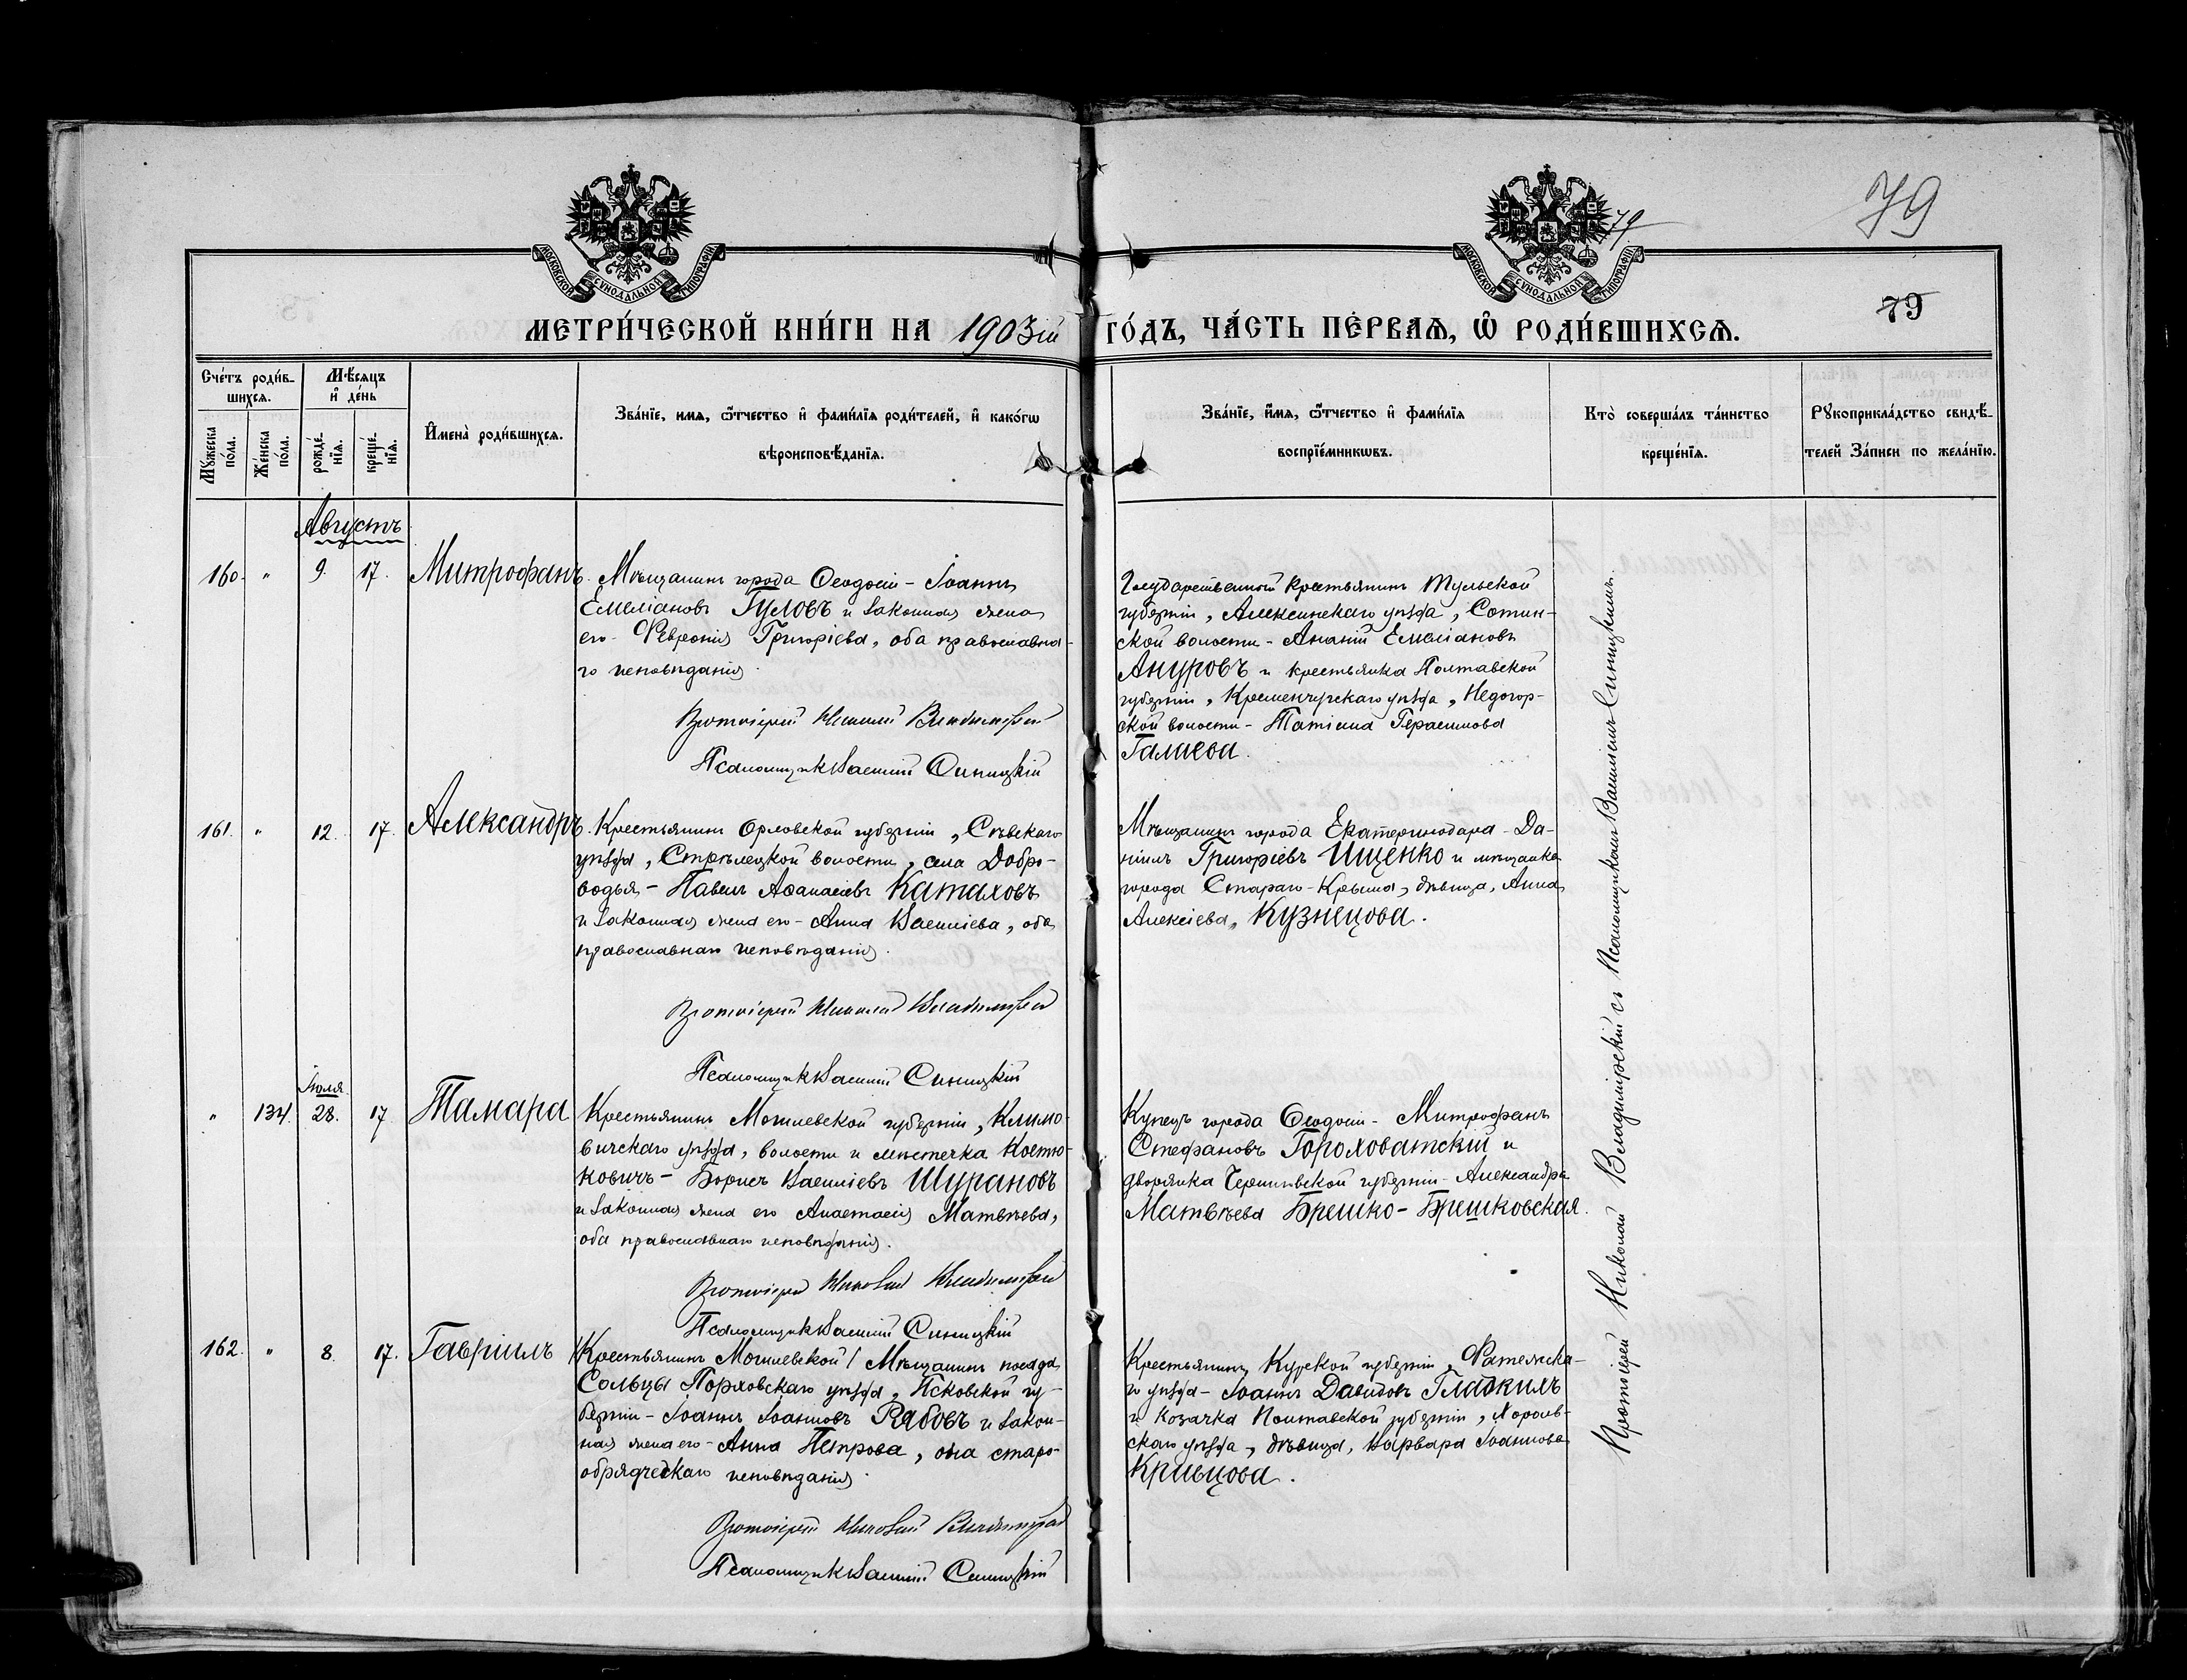 79
79
79
МОСКОВСКОЙ СУНОДАЛЬНОЙ ТИПОГРАФІИ
МОСКОВСКОЙ СУНОДАЛЬНОЙ ТИПОГРАФІИ
МЕТРИ́ЧЕСКОЙ КНИ́ГИ НА 1903ій ГО́ДЪ, ЧА́СТЬ ПЕ́РВАѦ, Ѡ РОДИ́ВШИХСѦ.
Сче́тъ роди́в-
шихсѧ.
Мꙋ́жеска
по́ла.
Же́нска
по́ла.
Мѣ́сѧцъ
и҆ де́нь
рожде́-
нїѧ.
креще́-
нїѧ.
И҆мена̀ роди́вшихсѧ.
Зва́нїе, имѧ, ѻ҆́тчество и҆ фами́лїѧ роди́телей, и҆ како́гѡ
вѣроисповѣ́данїѧ.
Зва́нїе, и҆́мѧ, ѻ҆́тчество и҆ фами́лїѧ
воспрїе́мникѡвъ.
Кто̀ соверша́лъ та́инство
креще́нїѧ.
Рꙋкоприкла́дство свидѣ́-
телей За́писи по жела́нїю.
Августъ
160. " 9. 17. Митрофанъ.
Мѣщанинъ города Ѳеодосіи - Іоаннъ
Емеліановъ Гуловъ и законная жена
его - Феврония Григоріева, оба православна-
го исповѣданія.
Протоіерей Николай Владимірскій
Псаломщикъ Василій Синицкій
Государственный крестьянинъ Тульской
губерніи, Алексинскаго уѣзда, Сотин-
ской волости - Ананій Емеліановъ
Ануровъ и крестьянка Полтавской
губерніи, Кременчугскаго уѣзда, Недогор-
ской волости - Татіана Герасимова
Галаева.
161. " 12. 17. Александръ.
Крестьянинъ Орловской губерніи, Сѣвскаго
уѣзда, Стрѣлецкой волости, села Добро-
водья - Павелъ Аѳанасіевъ Катаховъ
и законная жена его - Анна Василіева, оба
православнаго исповѣданія.
Протоіерей Николай Владимірскій
Псаломщикъ Василій Синицкій
Мѣщанинъ города Екатеринодара - Да-
ніилъ Григоріевъ Ищенко и мѣщанка
города Стараго-Крыма, дѣвица, Анна
Алексіева, Кузнецова.
Іюля
" 134. 28. 17 Тамара
Крестьянинъ Могилевской губерніи, Климо-
вичскаго уѣзда, волости и мѣстечка Костю-
ковичъ - Борисъ Василіевъ Шурановъ
и законная жена его Анастасія Матвѣева,
оба православнаго исповѣданія.
Протоіерей Николай Владимірскій
Псаломщикъ Василій Синицкій
Купецъ города Ѳеодосіи - Митрофанъ
Стефановъ Гороховатскій и
дворянка Черниговской губерніи - Александра
Матвѣева Брешко-Брешковская.
162. " 8. 17. Гавріилъ
/Крестьянинъ Могилевской/ Мѣщанинъ посада
Сольцы Порховскаго уѣзда, Псковской гу-
берніи - Іоаннъ Іоанновъ Рябовъ и закон-
ная жена его - Анна Петрова, оба старо-
обрядческаго исповѣданія.
Протоіерей Николай Владимірскій
Псаломщикъ Василій Синицкій
Крестьянинъ Курской губерніи, Фатежска-
го уѣзда - Іоаннъ Давидовъ Гладкихъ
и козачка Полтавской губерніи, Хороль-
скаго уѣзда, дѣвица, Варвара Іоаннова
Кривцова.
Протоіерей Николай Владимірскій съ Псаломщикомъ Василіемъ Синицкимъ.